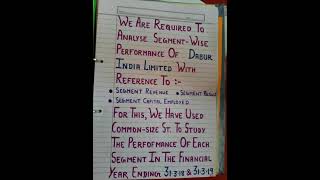 WE ARE REQUIRED TO
ANALYSE SEGMENT-WISE
PERFORMANCE OF DABUR
INDIA LIMITED WITH
REFERENCE TO :-
• SEGMENT REVENUE • SEGMENT RESULT
• SEGMENT CAPITAL EMPLOYED
FOR THIS, WE HAVE USED
COMMON-SIZE ST. TO STUDY
THE PERFOMANCE OF EACH
SEGMENT IN THE FINANCIAL
YEAR ENDING 31-3-18 & 31-3-19